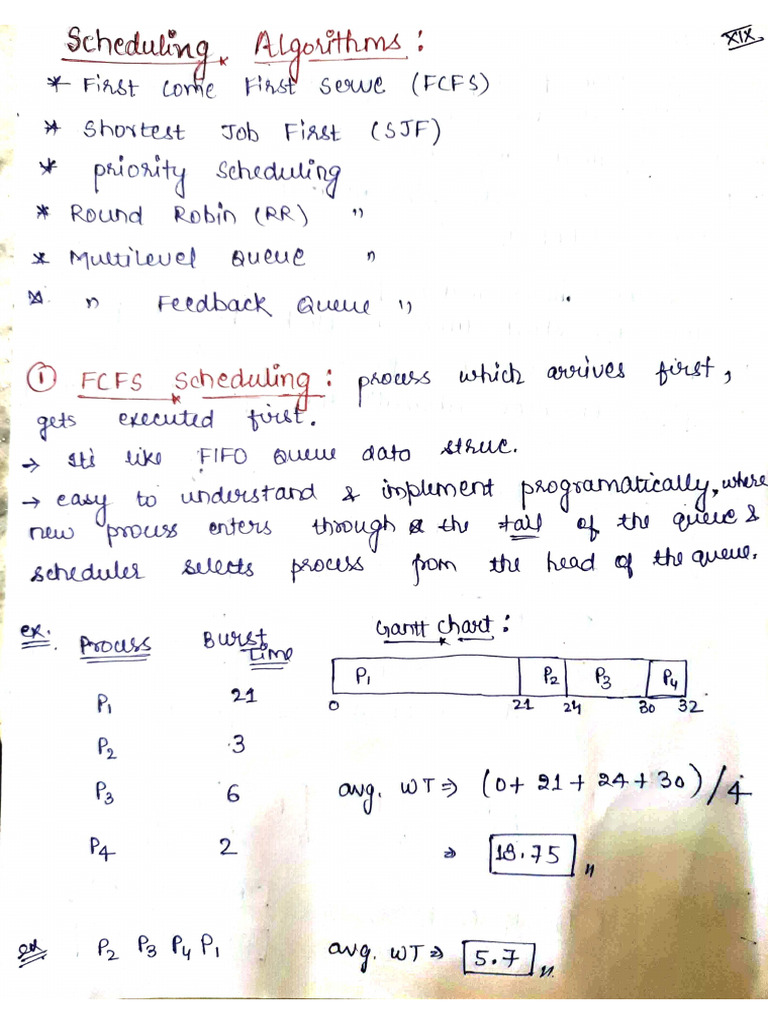 Scheduling Algorithms :
XIX
* First Come First Serve (FCFS)
* Shortest Job First (SJF)
* Priority Scheduling
* Round Robin (RR) "
* Multilevel Queue "
* " Feedback Queue "
① FCFS Scheduling : process which arrives first,
gets executed first.
→ It's like FIFO Queue data struc.
→ easy to understand & implement programatically, where
new process enters through the tail of the queue &
scheduler selects process from the head of the queue.
ex. Process Burst Time
P1 21
P2 3
P3 6
P4 2
Gantt chart :
P1 P2 P3 P4
0 21 24 30 32
avg. WT ⇒ (0 + 21 + 24 + 30) / 4
⇒ 18.75 "
ex P2 P3 P4 P1 avg. WT ⇒ 5.7 "